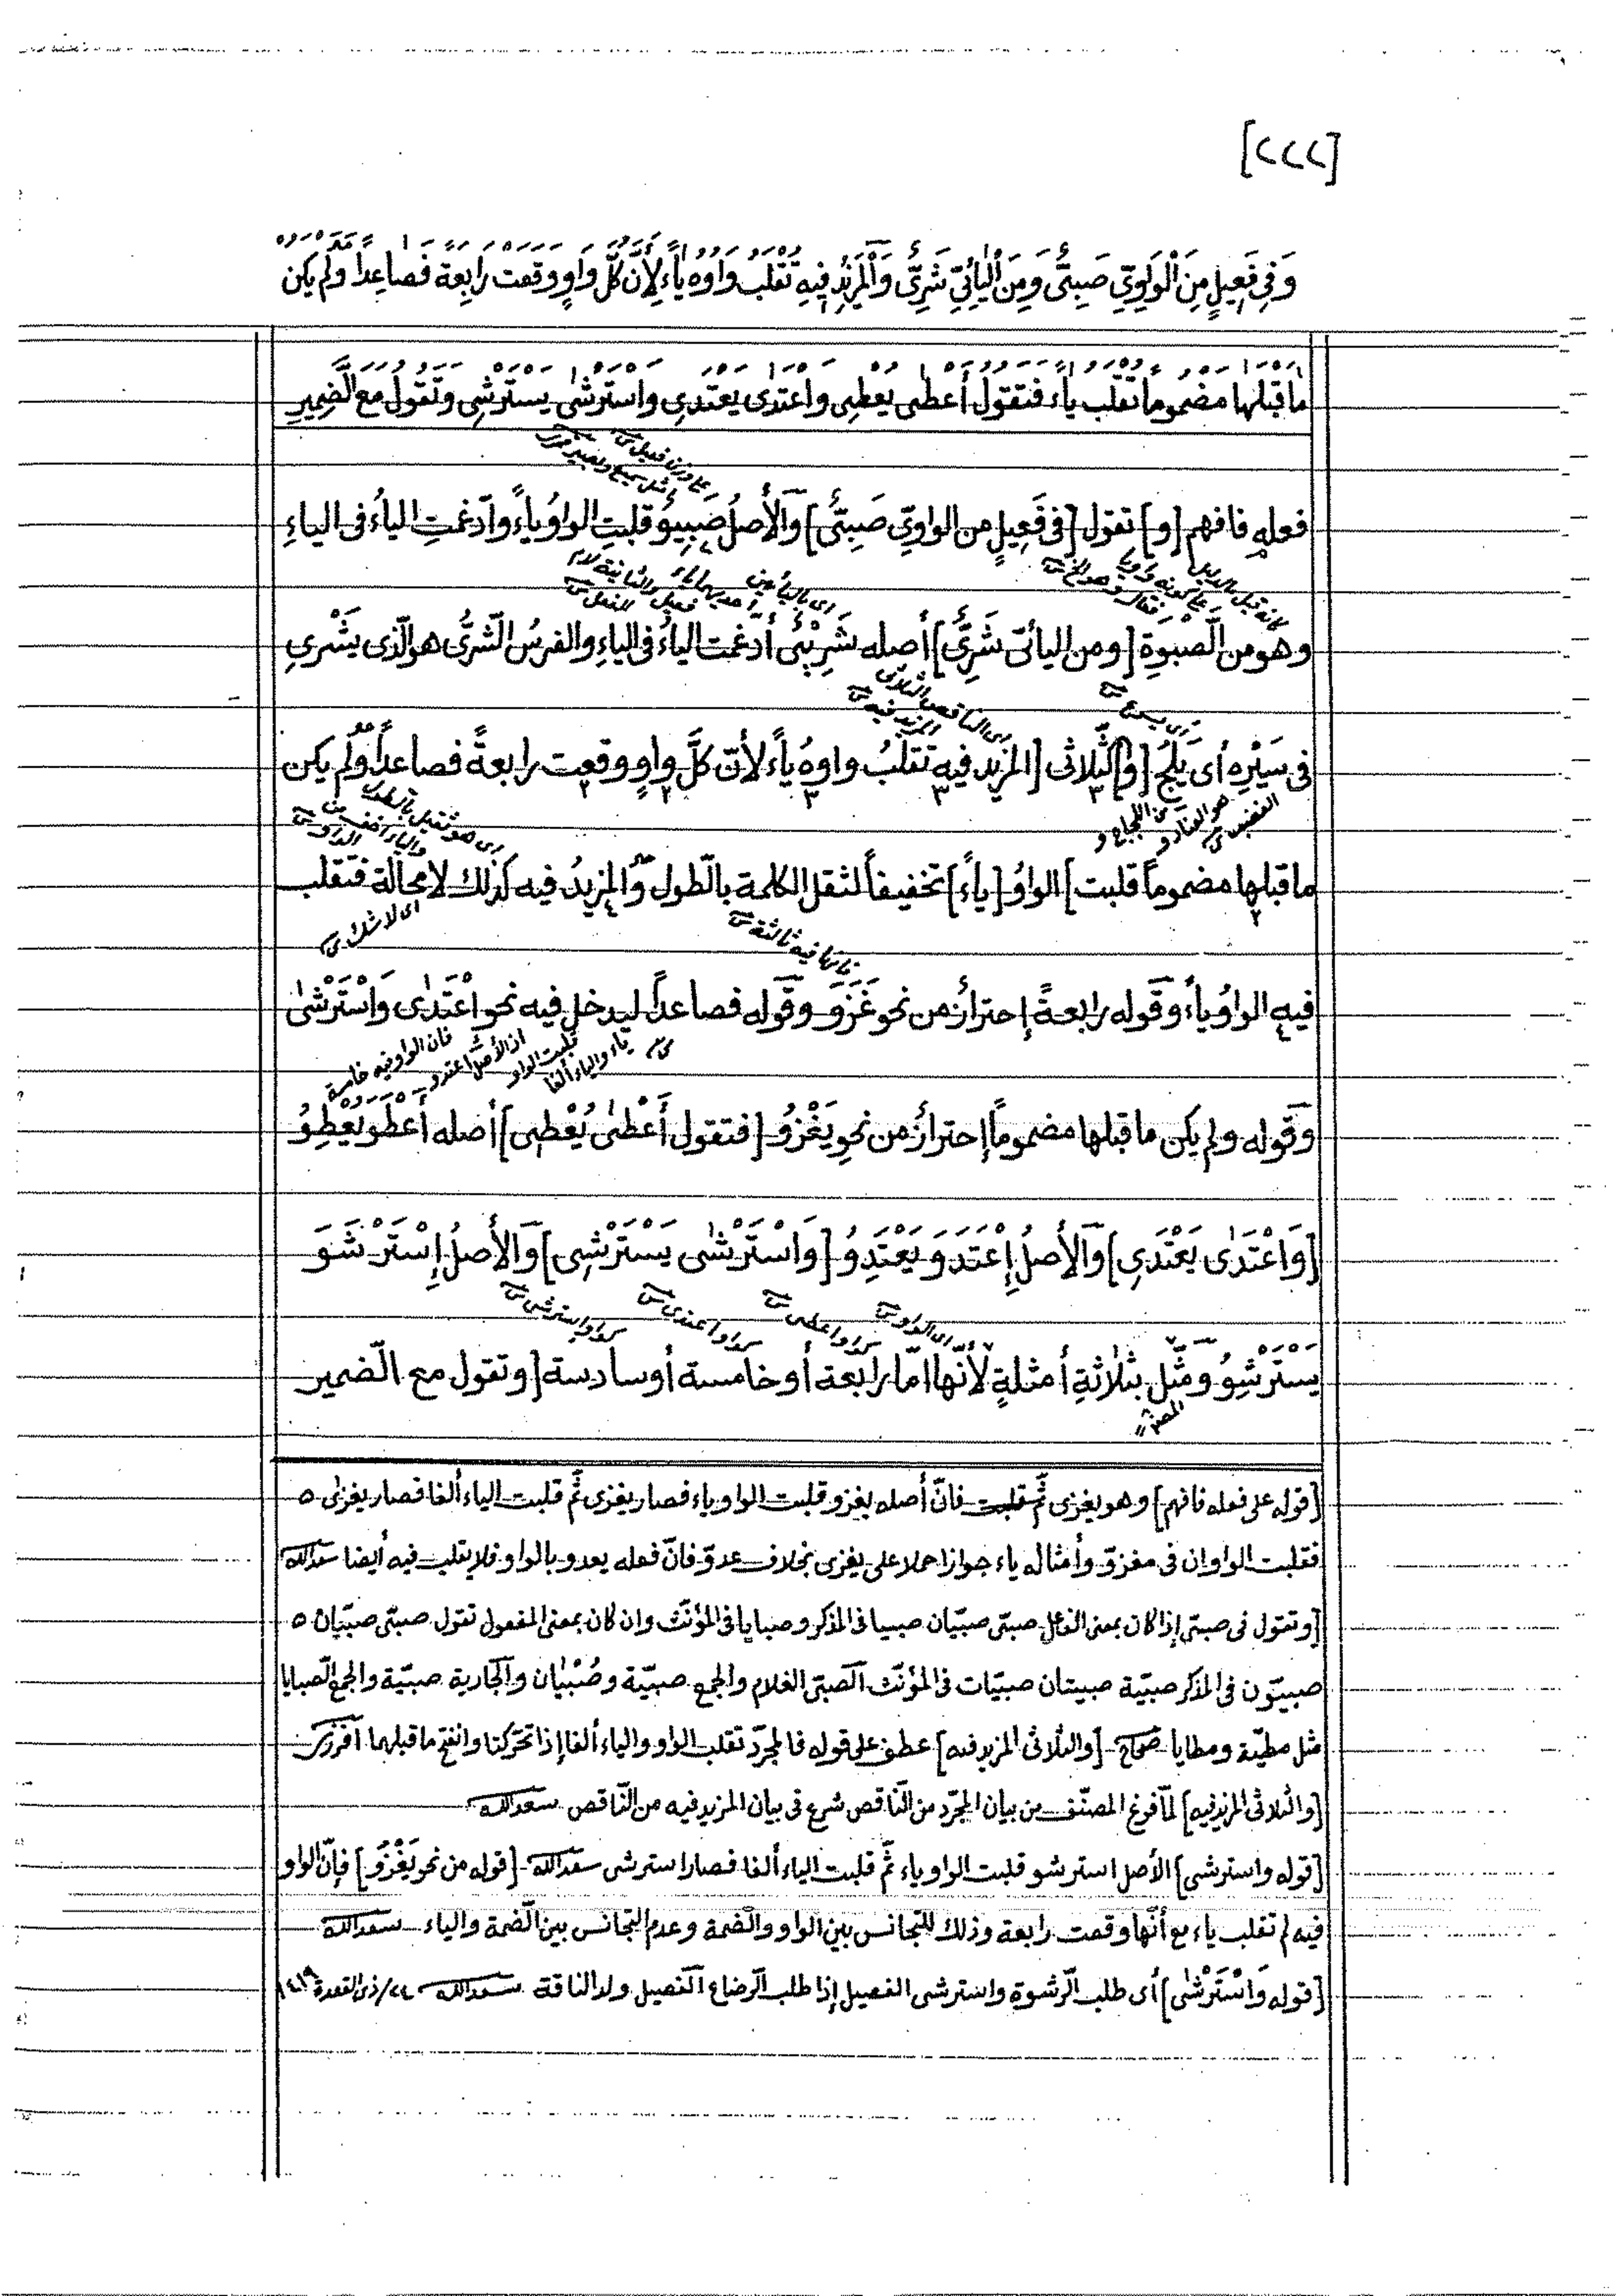 [٢٢٢]
وَفِى فَعِيلٍ مِنَ الْوَاوِيِّ صَبِىٌّ وَمِنَ الْيَائِيِّ شَرِىٌّ وَالْمَزِيدُ فِيهِ تُقْلَبُ وَاوُهُ يَاءً لِأَنَّ كُلَّ وَاوٍ وَقَعَتْ رَابِعَةً فَصَاعِداً وَلَمْ يَكُنْ
مَا قَبْلَهَا مَضْمُوماً تُقْلَبُ يَاءً فَتَقُولُ أَعْطٰى يُعْطِى وَاعْتَدٰى يَعْتَدِى وَاسْتَرْشٰى يَسْتَرْشِى وَتَقُولُ مَعَ الضَّمِيرِ
على وزن فعيل
مثل سميع وبصير
فعلِه فافهم [و] تقول [فى فَعِيلٍ من الواوِيّ صَبِىٌّ] والأصلُ صَبِيوٌ قلبتِ الواوُ ياءً وادّغمتِ الياءُ فى الياءِ
وهو من الصَّبوةِ [ومن اليائىّ شَرِىٌّ] أصله شَرِيْىٌ أدّغمت الياءُ فى الياءِ والفرسُ الشّرىُّ هو الّذى يَشْرِى
اى الناقص الثلاثى
المزيد فيه
فى سَيْرِه أى يَلِجُ [و] الثّلاثى [المزيد فيه تقلبُ واوه ياءً لأنّ كلَّ واوٍ وقعت رابعةً فصاعداً ولم يكن
من اللجاج و
هو العناد و
الغضب
ما قبلها مضموماً قلبت] الواوُ [ياءً] تخفيفاً لثقل الكلمة بالطّول والمزيدُ فيه كذلك لا محالة فتقلب
اى لا شك
فانها فيه ثالثة
فيه الواوُ ياءً وقوله رابعةً إحترازٌ من نحو غَزَوَ وقوله فصاعداً ليدخل فيه نحو اعْتَدٰى وَاسْتَرْشٰى
فان الواو فيه خامسة
اذ الأصل اعتدو
قلبت الواو
ياء والياء ألفا
وقوله ولم يكن ما قبلها مضموماً إحترازٌ من نحو يَغْزُو [فتقول أَعْطٰى يُعْطِى] أصله أَعْطَوَ يُعْطِوُ
[وَاعْتَدٰى يَعْتَدِى] والأصلُ إِعْتَدَوَ يَعْتَدِوُ [وَاسْتَرْشٰى يَسْتَرْشِى] والأصلُ إِسْتَرْشَوَ
اى الواو
يَسْتَرْشِوُ ومَثّل بثلاثةِ أمثلةٍ لأنّها امّا رابعة أو خامسة أو سادسة [وتقول مع الضّمير
المصنف
[قوله على فعله فافهم] وهو يغزى ثم قلبت فانّ أصله يغزو قلبت الواو ياء فصار يغزى ثم قلبت الياء ألفا فصار يغزى ٥
فقلبت الواوان فى مغزوّ وأمثاله ياء جوازا حملا على يغزى بخلاف عدوّ فانّ فعله يعدو بالواو فلا يقلب فيه أيضا سعدالله
[وتقول فى صبىّ إذا كان بمعنى الفاعل صبىّ صبيّان صبيا فى المذكر وصبايا فى المؤنّث وان كان بمعنى المفعول تقول صبىّ صبيّان ٥
صبيّون فى المذكر صبيّة صبيتان صبيّات فى المؤنّث الصبىّ الغلام والجمع صبيّة وصُبْيان والجارية صبيّة والجمع الصبايا
مثل مطيّة ومطايا صحاح [والثلاثى المزيد فيه] عطف على قوله فالمجرّد تقلب الواو والياء ألفا إذا تحرّكتا وانفتح ما قبلهما
[والثلاثى المزيد فيه] لمّا فرغ المصنّف من بيان المجرّد من النّاقص شرع فى بيان المزيد فيه من النّاقص سعدالله
[قوله واسترشى] الأصل استرشو قلبت الواو ياء ثم قلبت الياء ألفا فصار استرشى سعدالله [قوله من نحو يَغْزُو] فإنّ الواو
فيه لم تقلب ياء مع أنّها وقعت رابعة وذلك للتجانس بين الواو والضّمة وعدم التجانس بين الضّمة والياء سعدالله
[قوله وَاسْتَرْشٰى] أى طلب الرّشوة واسترشى الفصيل إذا طلب الرّضاع الفصيل ولد الناقة سعدالله ٢٤/ذى القعدة ١٤١٩